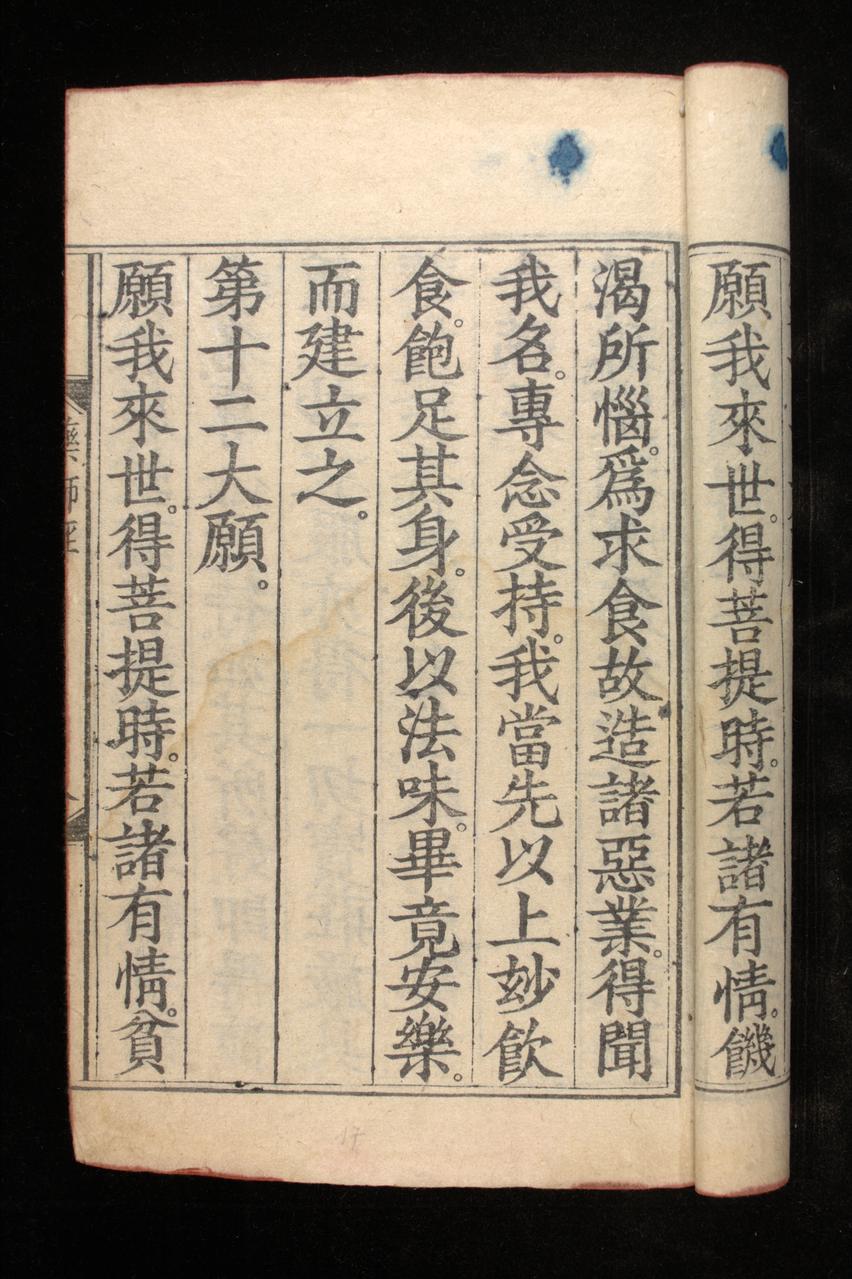 願我來世。得菩提時。若諸有情。饑
渴所惱。爲求食故造諸惡業。得聞
我名。專念受持。我當先以上玅飲
食。飽足其身。後以法味。畢竟安樂。
而建立之。
第十二大願。
願我來世。得菩提時。若諸有情。貧
藥師經
17